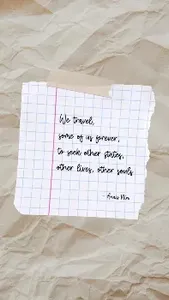 We travel,
some of us forever,
to seek other states,
other lives, other souls.
- Anais Nin